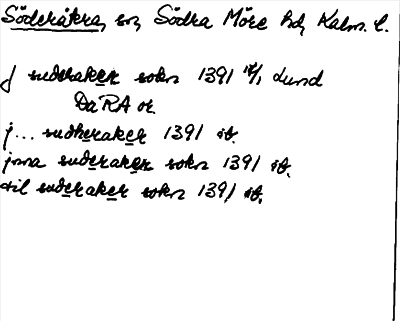 Söderåkra, sn, Södra Möre hd, Kalm. l.
J suderaker sokn 1391 Lund
DaRA or.
j... sudheraker 1391 ib.
jnna suderaker sokn 1391 ib.
til suderaker sokn 1391 ib.